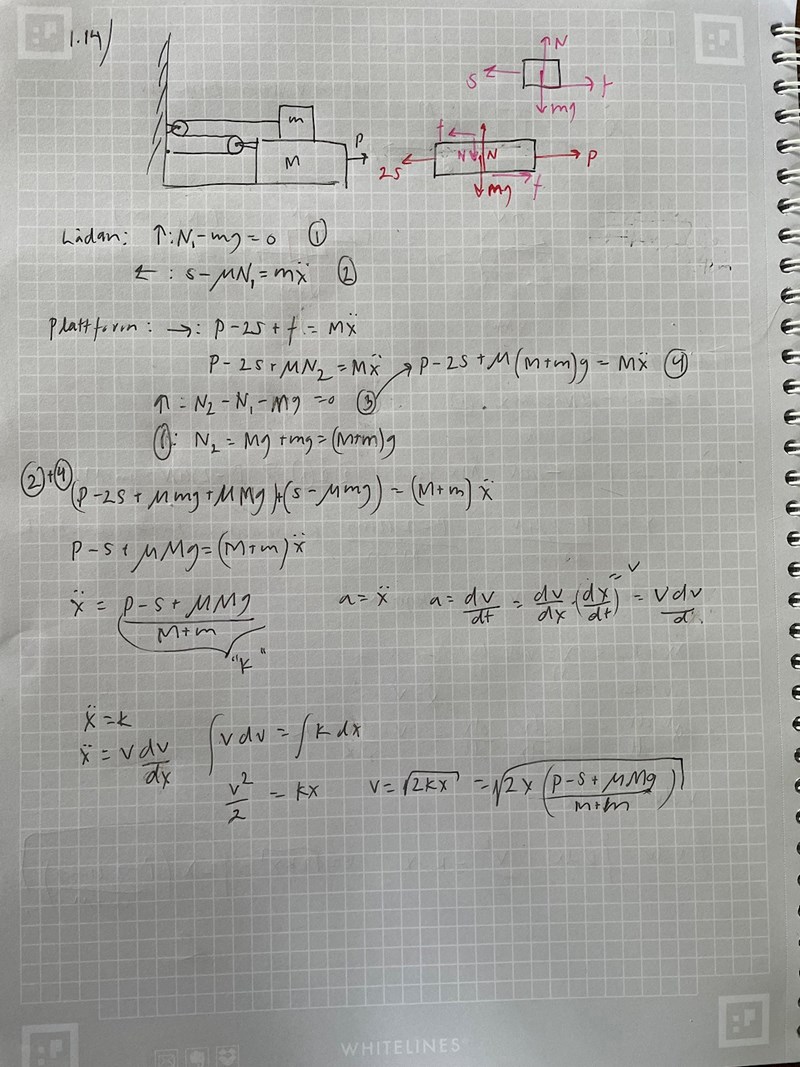 1.14)
m
M
P
N
S
f
mg
f
N
N
2S
P
Mg
f
Lådan: ↑: N₁-mg=0 ①
←: s-μN₁=mẍ ②
Plattform: →: P-2S+f=Mẍ
P-2S+μN₂=Mẍ → P-2S+μ(M+m)g=Mẍ ④
↑: N₂-N₁-Mg=0 ③
①: N₂=Mg+mg=(M+m)g
②+④ (P-2S+μmg+μMg)+(s-μmg)=(M+m)ẍ
P-S+μMg=(M+m)ẍ
ẍ = P-S+μMg / M+m "K" a=ẍ a=dv/dt = dv/dx · (dx/dt)=v = vdv/d
ẍ=k
ẍ=v dv/dx ∫vdv=∫kdx
v²/2 = kx v=√2kx =√2x(P-S+μMg / m+M)
WHITELINES